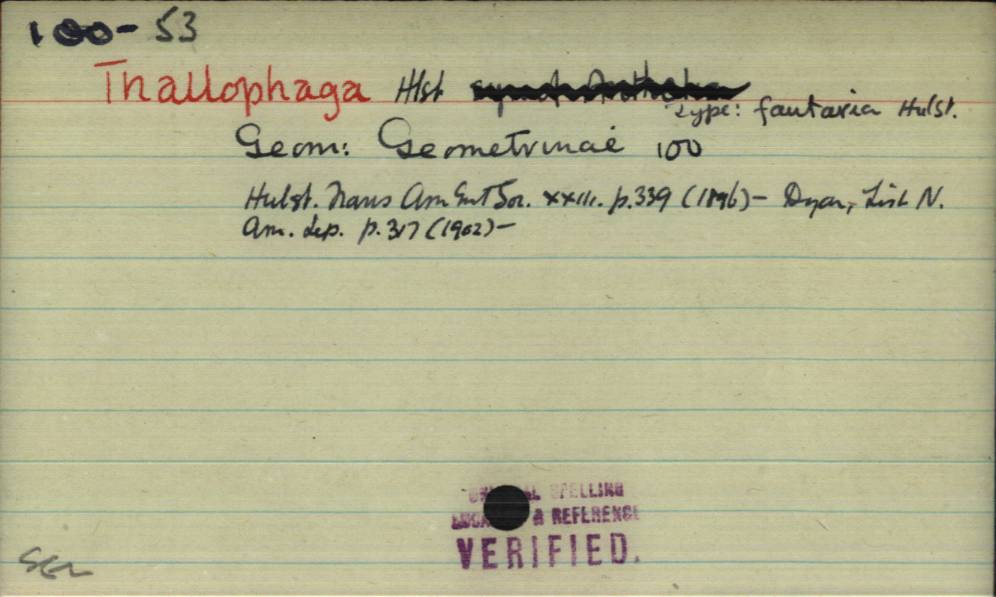 100-53
Thallophaga Hlst
Type: fautaria Hulst.
Geom: Geometrinae 100
Hulst. Trans Am Ent Soc. xxiii. p.339 (1896)- Dyar, List N.
Am. Lep. p.317 (1902)-
SPELLING
& REFERENCE
VERIFIED.